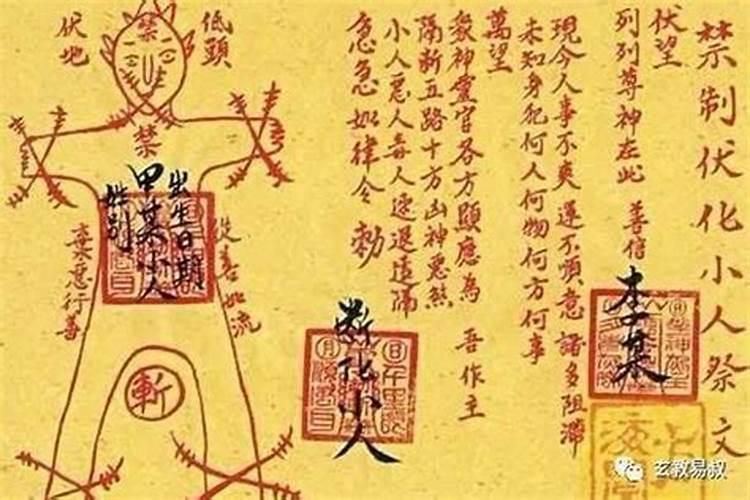 禁制伏化小人祭文
伏望
列列尊神在此 善信
李某
現今人事不爽 運不順意 諸多阻滯
未知身犯何人何物何方何事
萬望
眾神靈官各方顯應為 吾作主
隔斷五路十方凶神惡煞
小人惡人毒人速退遠隔
急急如律令 勅
斬化小人
低頭
伏地
禁
禁
出生日期
甲某小人
姓别
從善如流
棄惡行善
斬
玄教易叔